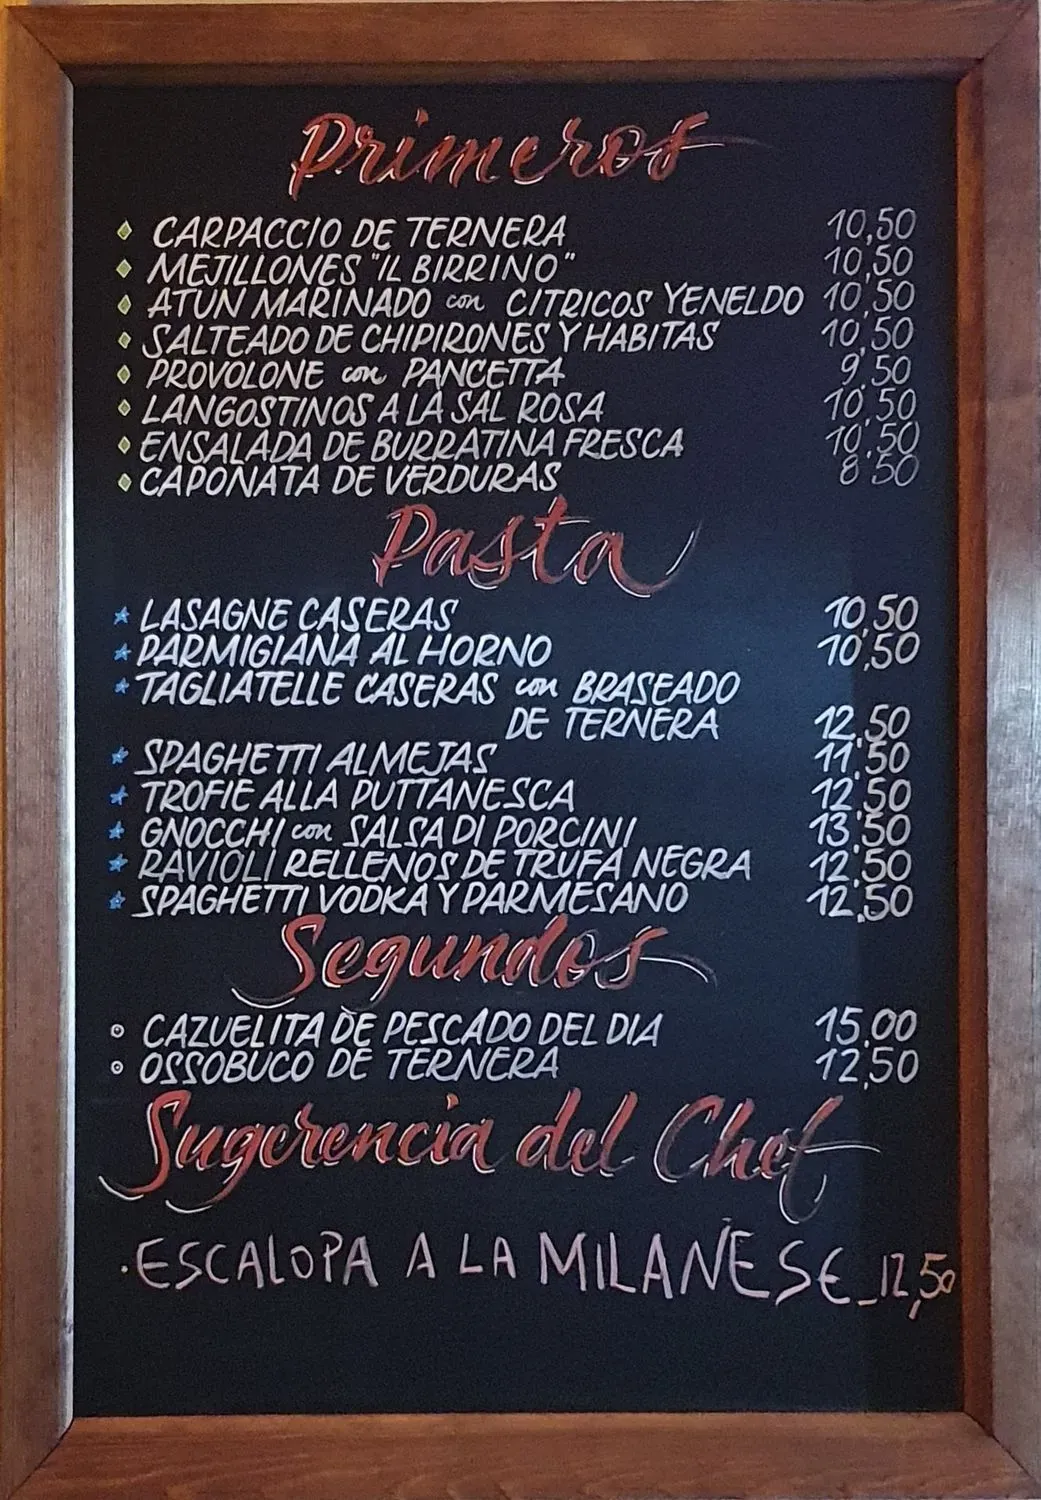 Primeros
CARPACCIO DE TERNERA 10,50
MEJILLONES "IL BIRRINO" 10,50
ATÚN MARINADO con CITRICOS Y ENELDO 10,50
SALTEADO DE CHIPIRONES Y HABITAS 10,50
PROVOLONE con PANCETTA 9,50
LANGOSTINOS A LA SAL ROSA 10,50
ENSALADA DE BURRATINA FRESCA 10,50
CAPONATA DE VERDURAS 8,50
Pasta
LASAGNE CASERAS 10,50
PARMIGIANA AL HORNO 10,50
TAGLIATELLE CASERAS con BRASEADO
DE TERNERA 12,50
SPAGHETTI ALMEJAS 11,50
TROFIE ALLA PUTTANESCA 12,50
GNOCCHI con SALSA DI PORCINI 13,50
RAVIOLI RELLENOS DE TRUFA NEGRA 12,50
SPAGHETTI VODKA Y PARMESANO 12,50
Segundos
CAZUELITA DE PESCADO DEL DIA 15,00
OSSOBUCO DE TERNERA 12,50
Sugerencia del Chef
.ESCALOPA A LA MILANESE_12,50